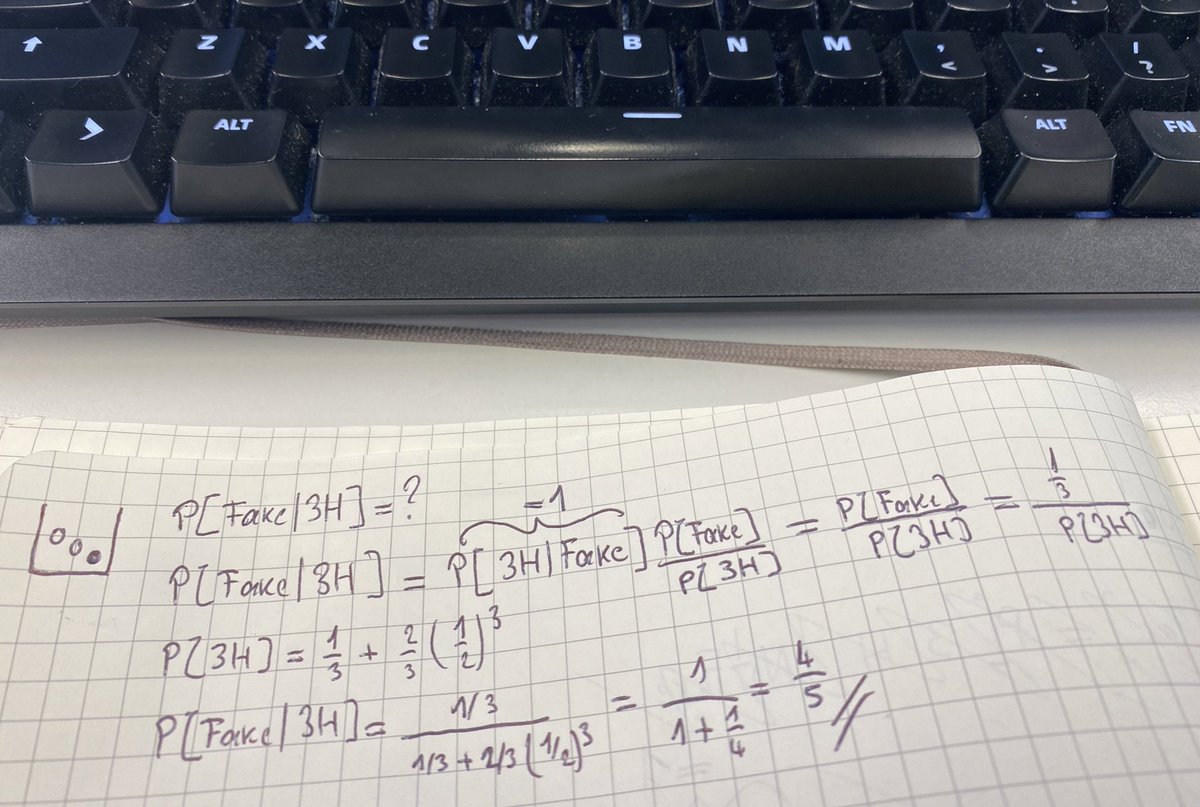 Z X C V B N M , < . > ! ?
ALT ALT FN
P[Fake|3H]=?
=1
P[Fake|3H] = P[3H|Fake] P[Fake]/P[3H] = P[Fake]/P[3H] = 1/3/P[3H]
P[3H] = 1/3 + 2/3 (1/2)^3
P[Fake|3H] = 1/3/1/3 + 2/3 (1/2)^3 = 1/1 + 1/4 = 4/5 //